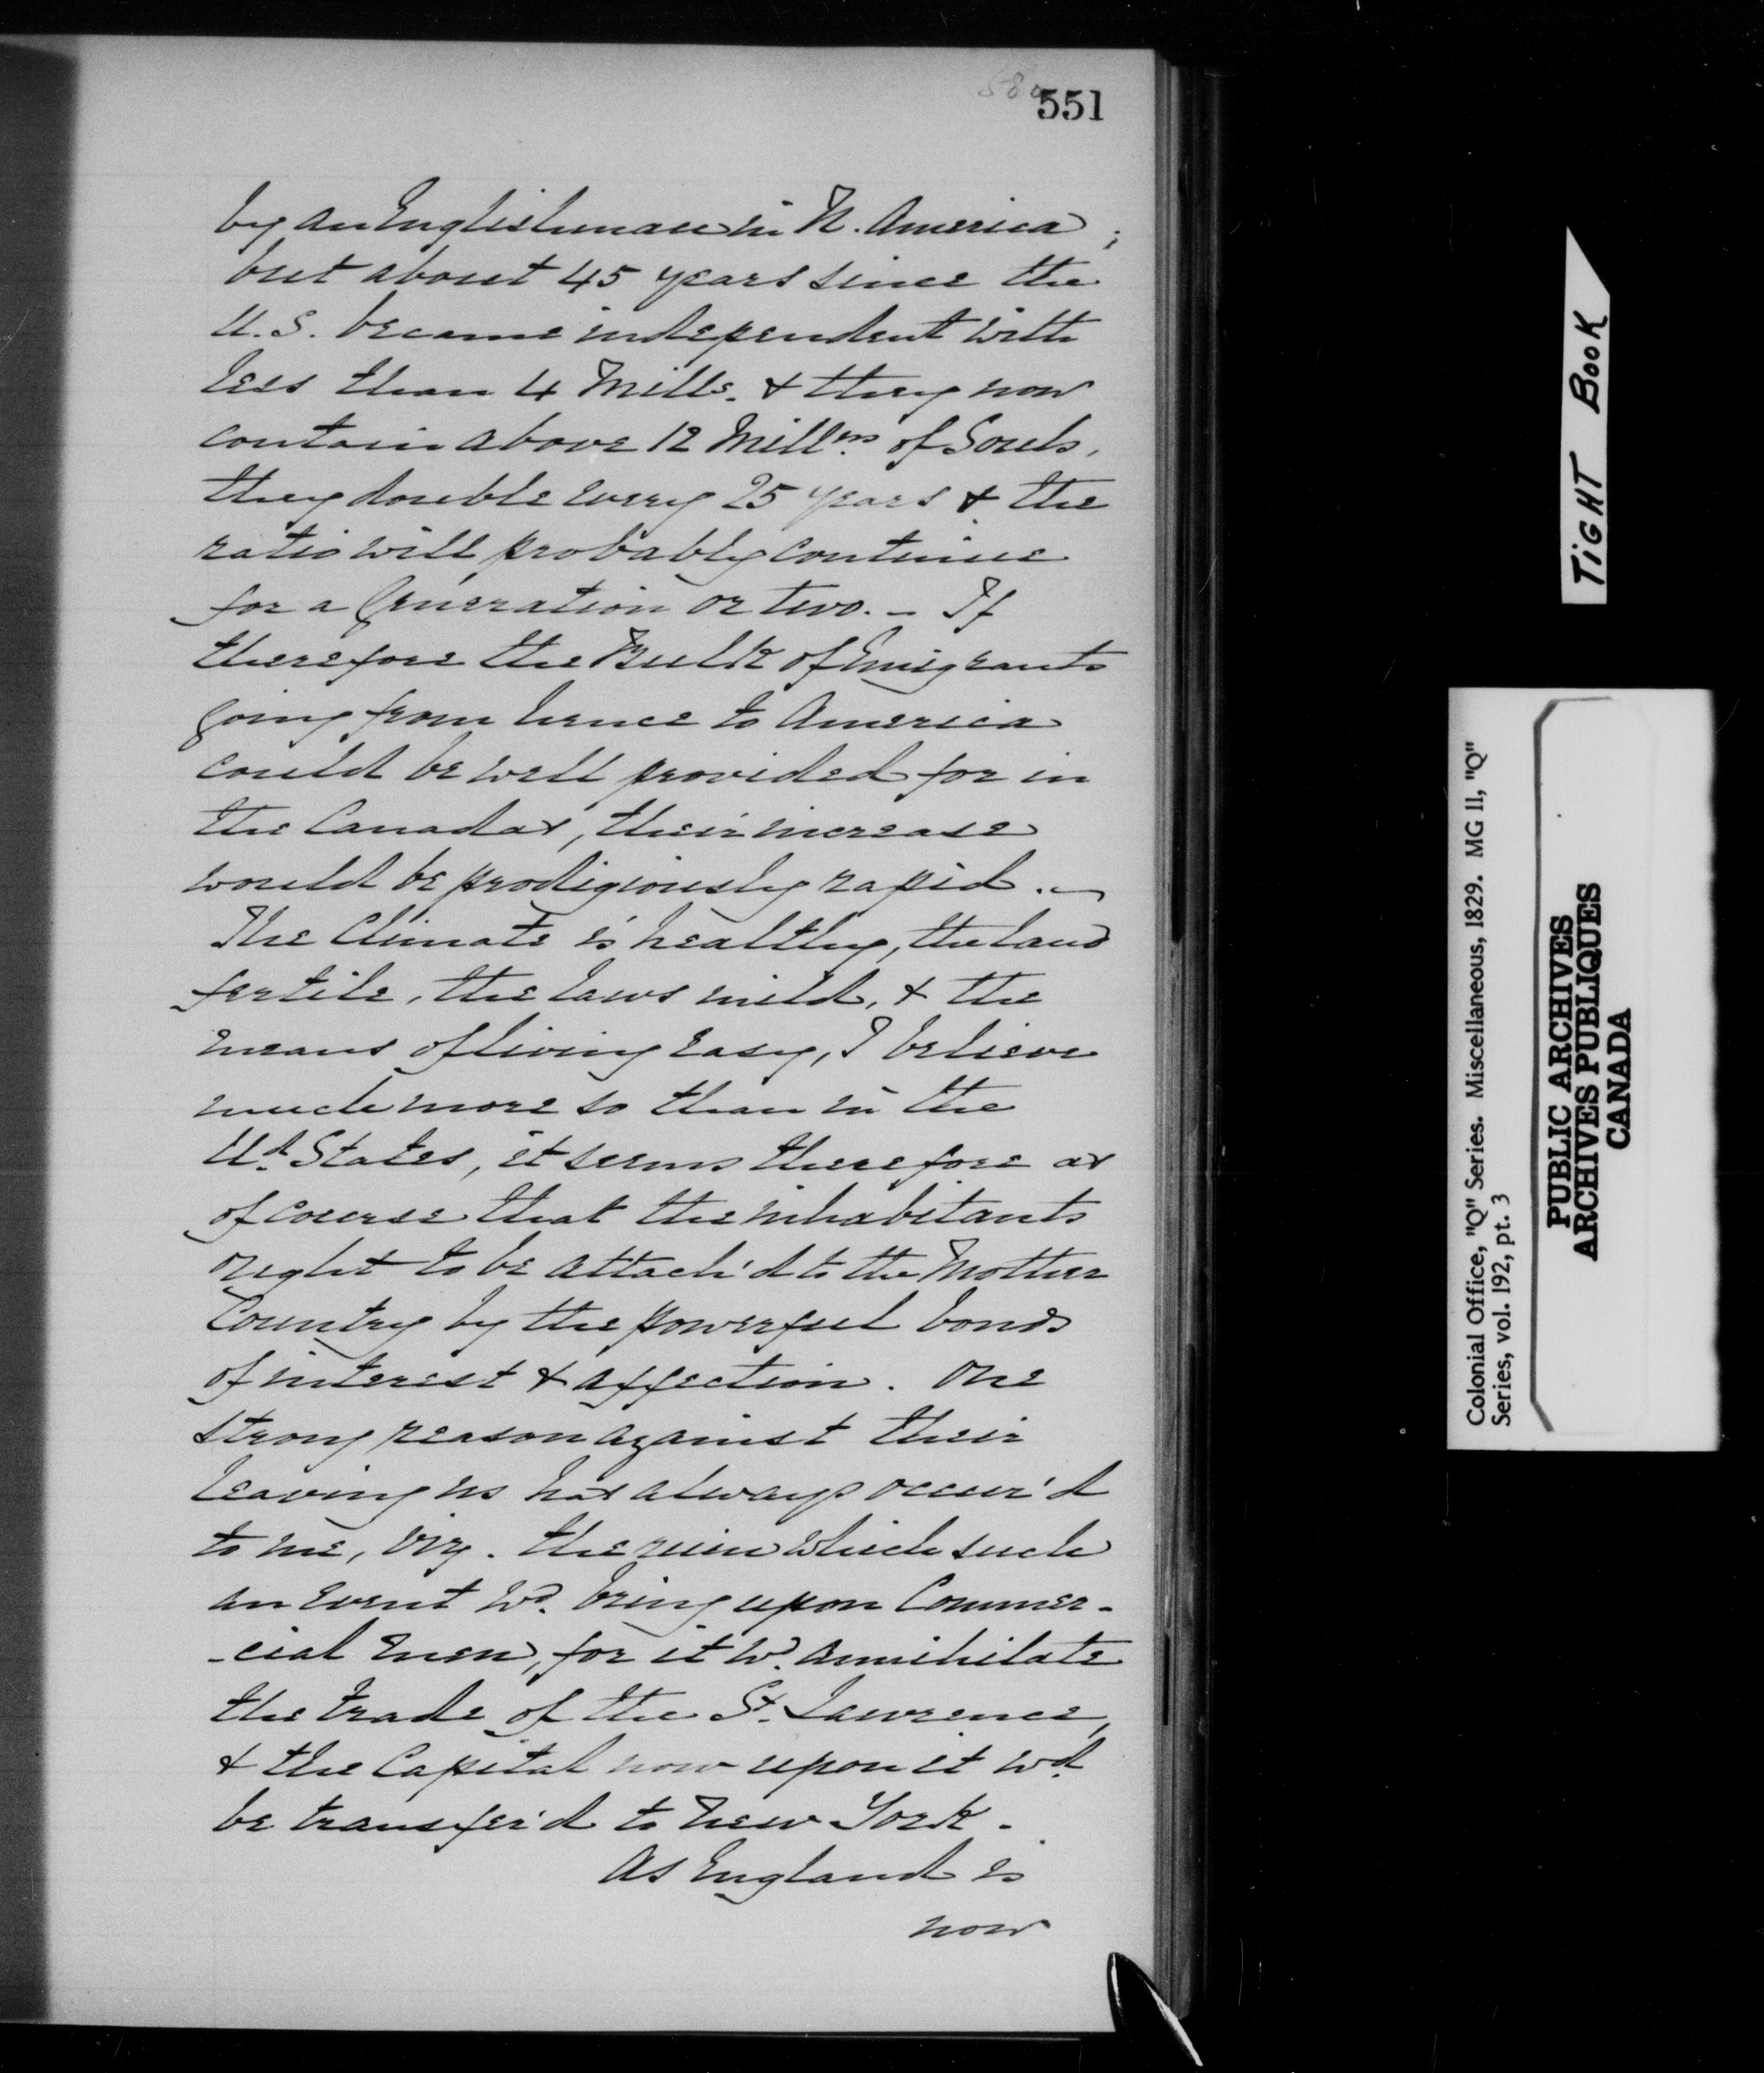 551
by an Englishman in N. America;
but about 45 years since the
U.S. became independent with
less than 4 Mills. & they now
contain above 12 Millns. of Souls,
they double every 25 years & the
ratio will probably continue
for a Generation or two. - If
therefore the Bulk of Emigrants
going from hence to America
could be well provided for in
the Canadas, their increase
would be prodigiously rapid. -
The Climate is healthy, the land
fertile, the laws mild, & the
means of living easy, I believe
much more so than in the
Ud. States, it seems therefore as
of course that the inhabitants
ought to be attach'd to the Mother
Country by the powerful bonds
of interest & affection. One
strong reason against their
leaving us has always occur'd
to me, viz. the ruin which such
an Event wd. bring upon Commer-
-cial men, for it wd. annihilate
the trade of the St. Lawrence,
& the Capital now upon it wd.
be transfer'd to New York.
As England is
now
TIGHT BOOK
Colonial Office, "Q" Series. Miscellaneous, 1829. MG 11, "Q"
Series, vol. 192, pt. 3
PUBLIC ARCHIVES
ARCHIVES PUBLIQUES
CANADA